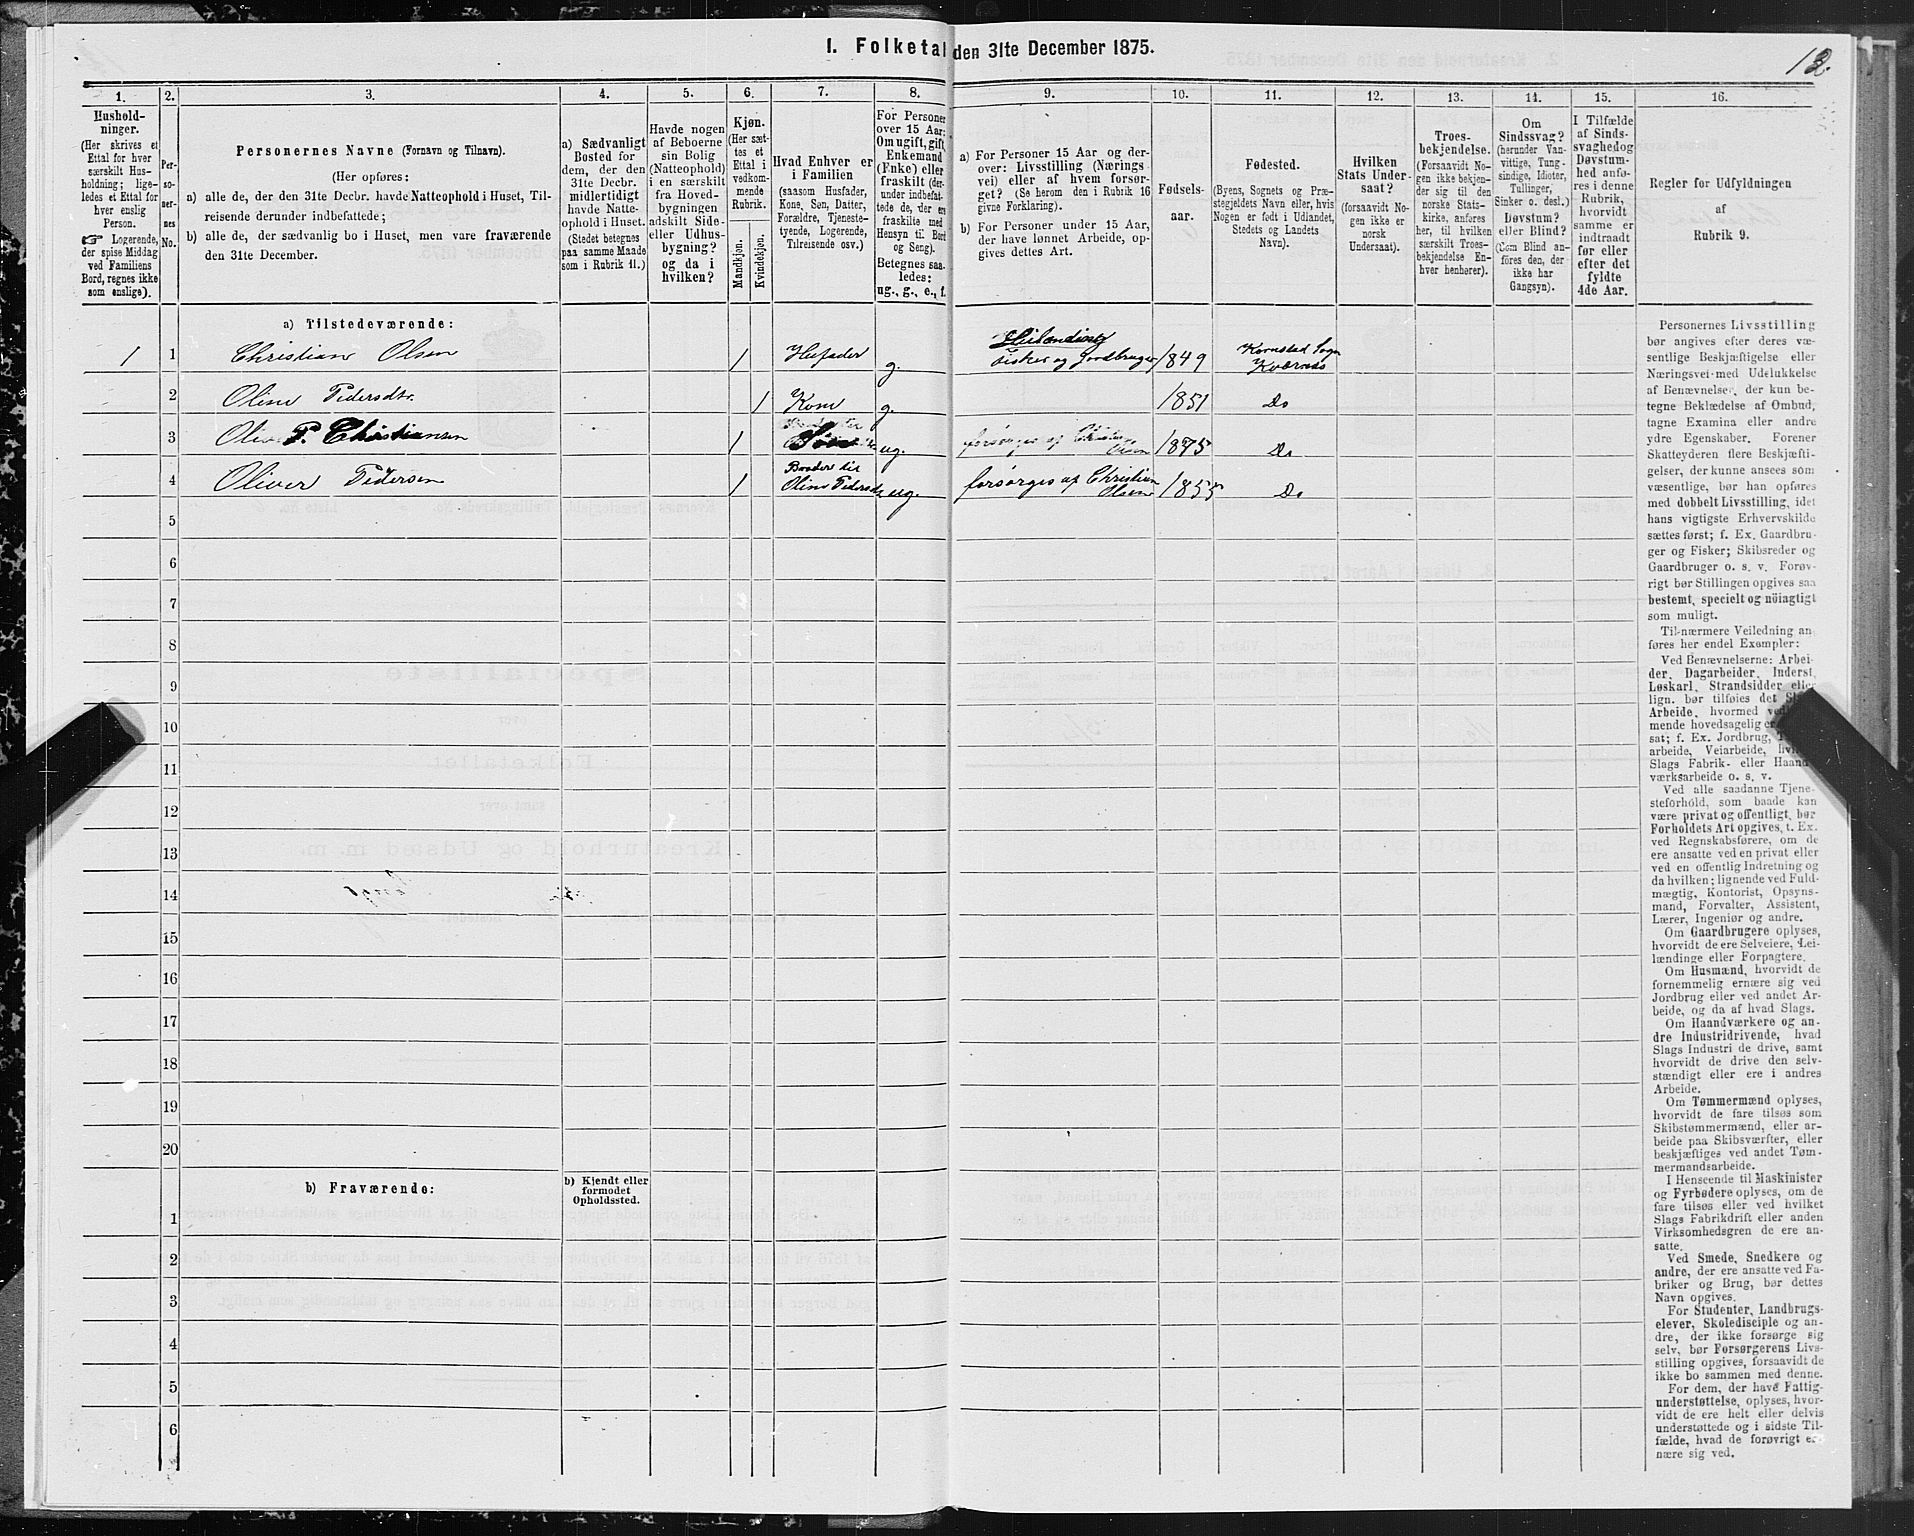 1. Folketal den 31te December 1875.
12.
1.
2.
3.
4.
5.
6.
7.
8.
9.
10.
11.
12.
13.
14.
15.
16.
Hushold-
ninger.
(Her skrives et
Ettal for hver
særskilt Hus-
holdning; lige-
ledes et Ettal for
hver enslig
Person.
Logerende,
der spise Middag
ved Familiens
Bord, regnes ikke
som enslige).
Per-
so-
ner-
nes
No.
Personernes Navne (Fornavn og Tilnavn).
(Her opføres:
a) alle de, der den 31te Decbr. havde Natteophold i Huset, Til-
reisende derunder indbefattede;
b) alle de, der sædvanlig bo i Huset, men vare fraværende
den 31te December.
a) Sædvanligt
Bosted for
dem, der den
31te Decbr.
midlertidigt
havde Natte-
ophold i Huset.
(Stedet betegnes
paa samme Maade
som i Rubrik 11.)
Havde nogen
af Beboerne
sin Bolig
(Natteophold)
i en særskilt
fra Hoved-
bygningen
adskilt Side-
eller Udhus-
bygning?
og da i
hvilken?
Kjøn.
(Her sæt-
tes et
Ettal i
vedkom-
mende
Rubrik.
Mandkjøn.
Kvindekjøn.
Hvad Enhver er
i Familien
(saasom Husfader,
Kone, Søn, Datter,
Forældre, Tjeneste-
tyende, Logerende,
Tilreisende osv.)
For Personer
over 15 Aar:
Om ugift, gift,
Enkemand
(Enke) eller
fraskilt (der-
under indbefat-
tede de, der ere
fraskilte med
Hensyn til Bord
og Seng).
Betegnes saa-
ledes:
ug., g., e., f.
a) For Personer 15 Aar og der-
over: Livsstilling (Nærings
vei) eller af hvem forsør-
get? (Se herom den i Rubrik 16
givne Forklaring).
b) For Personer under 15 Aar,
der have lønnet Arbeide, op-
gives dettes Art.
Fødsels-
aar.
Fødested.
(Byens, Sognets og Præ-
stegjeldets Navn eller, hvis
Nogen er født i Udlandet,
Stedets og Landets
Navn).
Hvilken
Stats Under-
saat?
(forsaavidt No-
gen ikke er
norsk
Undersaat).
Troes-
bekjendelse.
(Forsaavidt No-
gen ikke bekjen-
der sig til den
norske Stats-
kirke, anføres
her, til hvilken
særskilt Troes-
bekjendelse En-
hver henhører).
Om
Sindssvag?
(herunder Van-
vittige, Tung-
sindige, Idioter,
Tullinger,
Sinker o. desl.)
Døvstum?
eller Blind?
(Som Blind an-
føres den, der
ikke har
Gangsyn).
I Tilfælde
af Sinds-
svaghedog
Døvstum-
hed anfø-
res i denne
Rubrik,
hvorvidt
samme er
indtraadt
før eller
efter det
fyldte
4de Aar.
Regler for Udfyldningen
af
Rubrik 9.
a) Tilstedeværende:
1 1 Christian Olsen 1 Husfader g. Fisker og Jordbruger 1849 Kornstad Sogn
Kværnes
2 Oline Pedersdtr. 1 Kone g. 1851 Do
3 Oliver P. Christiansen 1 Søn ug. forsørges af Christian
Olsen 1875 Do
4 Oliver Pedersen 1 Broder til
Oline Pedersdtr ug. forsørges af Christian
Olsen 1855 Do
5
6
7
8
9
10
11
12
13
14
15
16
17
18
19
20
b) Fraværende:
b) Kjendt eller
formodet
Opholdssted.
1
2
3
4
5
6
Personernes Livsstilling
bør angives efter deres væ-
sentlige Beskjæftigelse eller
Næringsvei med Udelukkelse
af Benævnelser, der kun be-
tegne Beklædelse af Ombud,
tagne Examina eller andre
ydre Egenskaber. Forener
Skatteyderen flere Beskjæfti-
gelser, der kunne ansees som
væsentlige, bør han opføres
med dobbelt Livsstilling, idet
hans vigtigste Erhvervskilde
sættes først; f. Ex. Gaardbru-
ger og Fisker; Skibsreder og
Gaardbruger o. s. v. Forøv-
rigt bør Stillingen opgives saa
bestemt, specielt og nøiagtigt
som muligt.
Til nærmere Veiledning an
føres her endel Exempler:
Ved Benævnelserne: Arbei
der, Dagarbeider, Inderst,
Løskarl, Strandsidder eller
lign. bør tilføies det
Arbeide, hvormed
mende hovedsagelig er
sat; f. Ex. Jordbrug,
arbeide, Veiarbeide,
Slags Fabrik- eller Haand-
værksarbeide o. s. v.
Ved alle saadanne Tjene-
steforhold, som baade kan
være privat og offentligt, bør
Forholdets Art opgives, t. Ex.
ved Regnskabsførere, om de
ere ansatte ved en privat eller
ved en offentlig Indretning og
da hvilken; lignende ved Fuld-
mægtig, Kontorist, Opsyns-
mand, Forvalter, Assistent,
Lærer, Ingeniør og andre.
Om Gaardbrugere oplyses,
hvorvidt de ere Selveiere, Lei-
lændinge eller Forpagtere.
Om Husmænd, hvorvidt de
fornemmelig ernære sig ved
Jordbrug eller ved andet Ar-
beide, og da af hvad Slags.
Om Haandværkere og an-
dre Industridrivende, hvad
Slags Industri de drive, samt
hvorvidt de drive den selv-
stændigt eller ere i andres
Arbeide.
Om Tømmermænd oplyses,
hvorvidt de fare tilsøs som
Skibstømmermænd, eller ar-
beide paa Skibsværfter, eller
beskjæftiges ved andet Tøm-
mermandsarbeide.
I Henseende til Maskinister
og Fyrbødere oplyses, om de
fare tilsøs eller ved hvilket
Slags Fabrikdrift eller anden
Virksomhedsgren de ere an-
satte.
Ved Smede, Snedkere og
andre, der ere ansatte ved Fa-
briker og Brug, bør dettes
Navn opgives.
For Studenter, Landbrugs-
elever, Skoledisciple og an-
dre, der ikke forsørge sig
selv, bør Forsørgerens Livs-
stilling opgives, forsaavidt de
ikke bo sammen med denne.
For dem, der have Fattig-
understøttelse, oplyses, hvor-
vidt de ere helt eller delvis
understøttede og i sidste Til-
fælde, hvad de forøvrigt er-
nære sig ved.